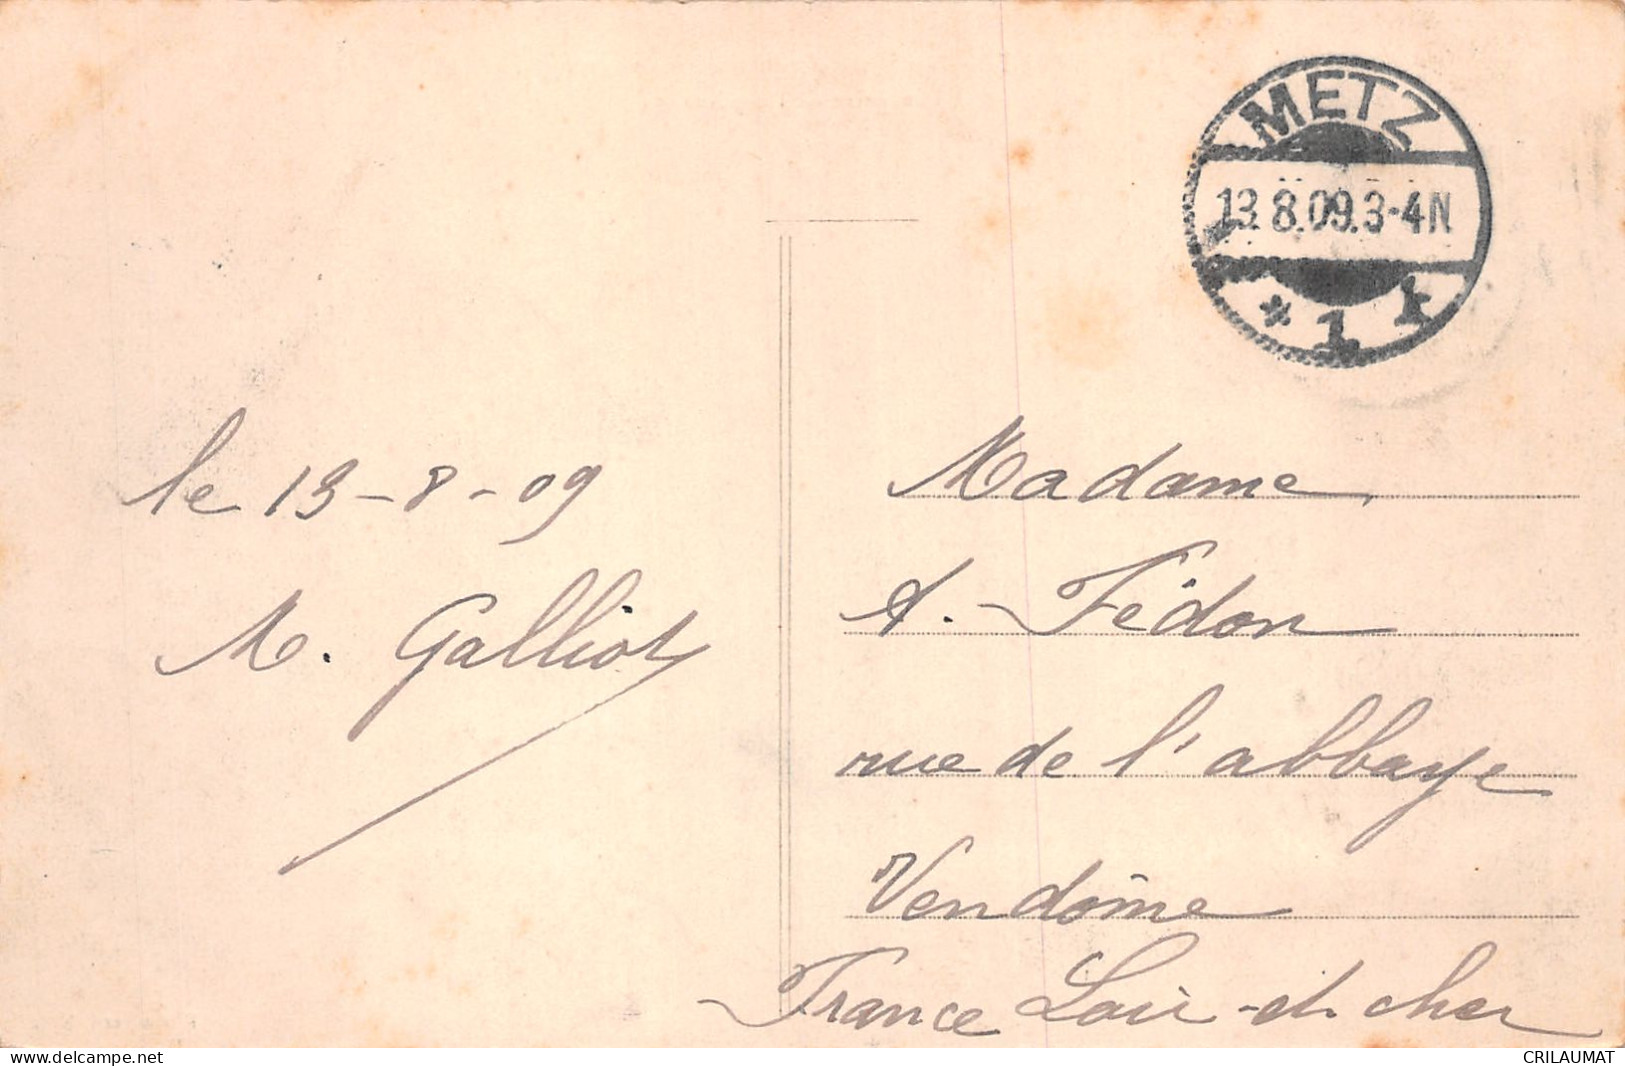 METZ
13.8.09.3-4N
* 1 k
le 13-8-09
M. Galliot
Madame
A. Fédon
rue de l'abbaye
Vendôme
France Loir-et-cher
delcampe.net
CRILAUMAT